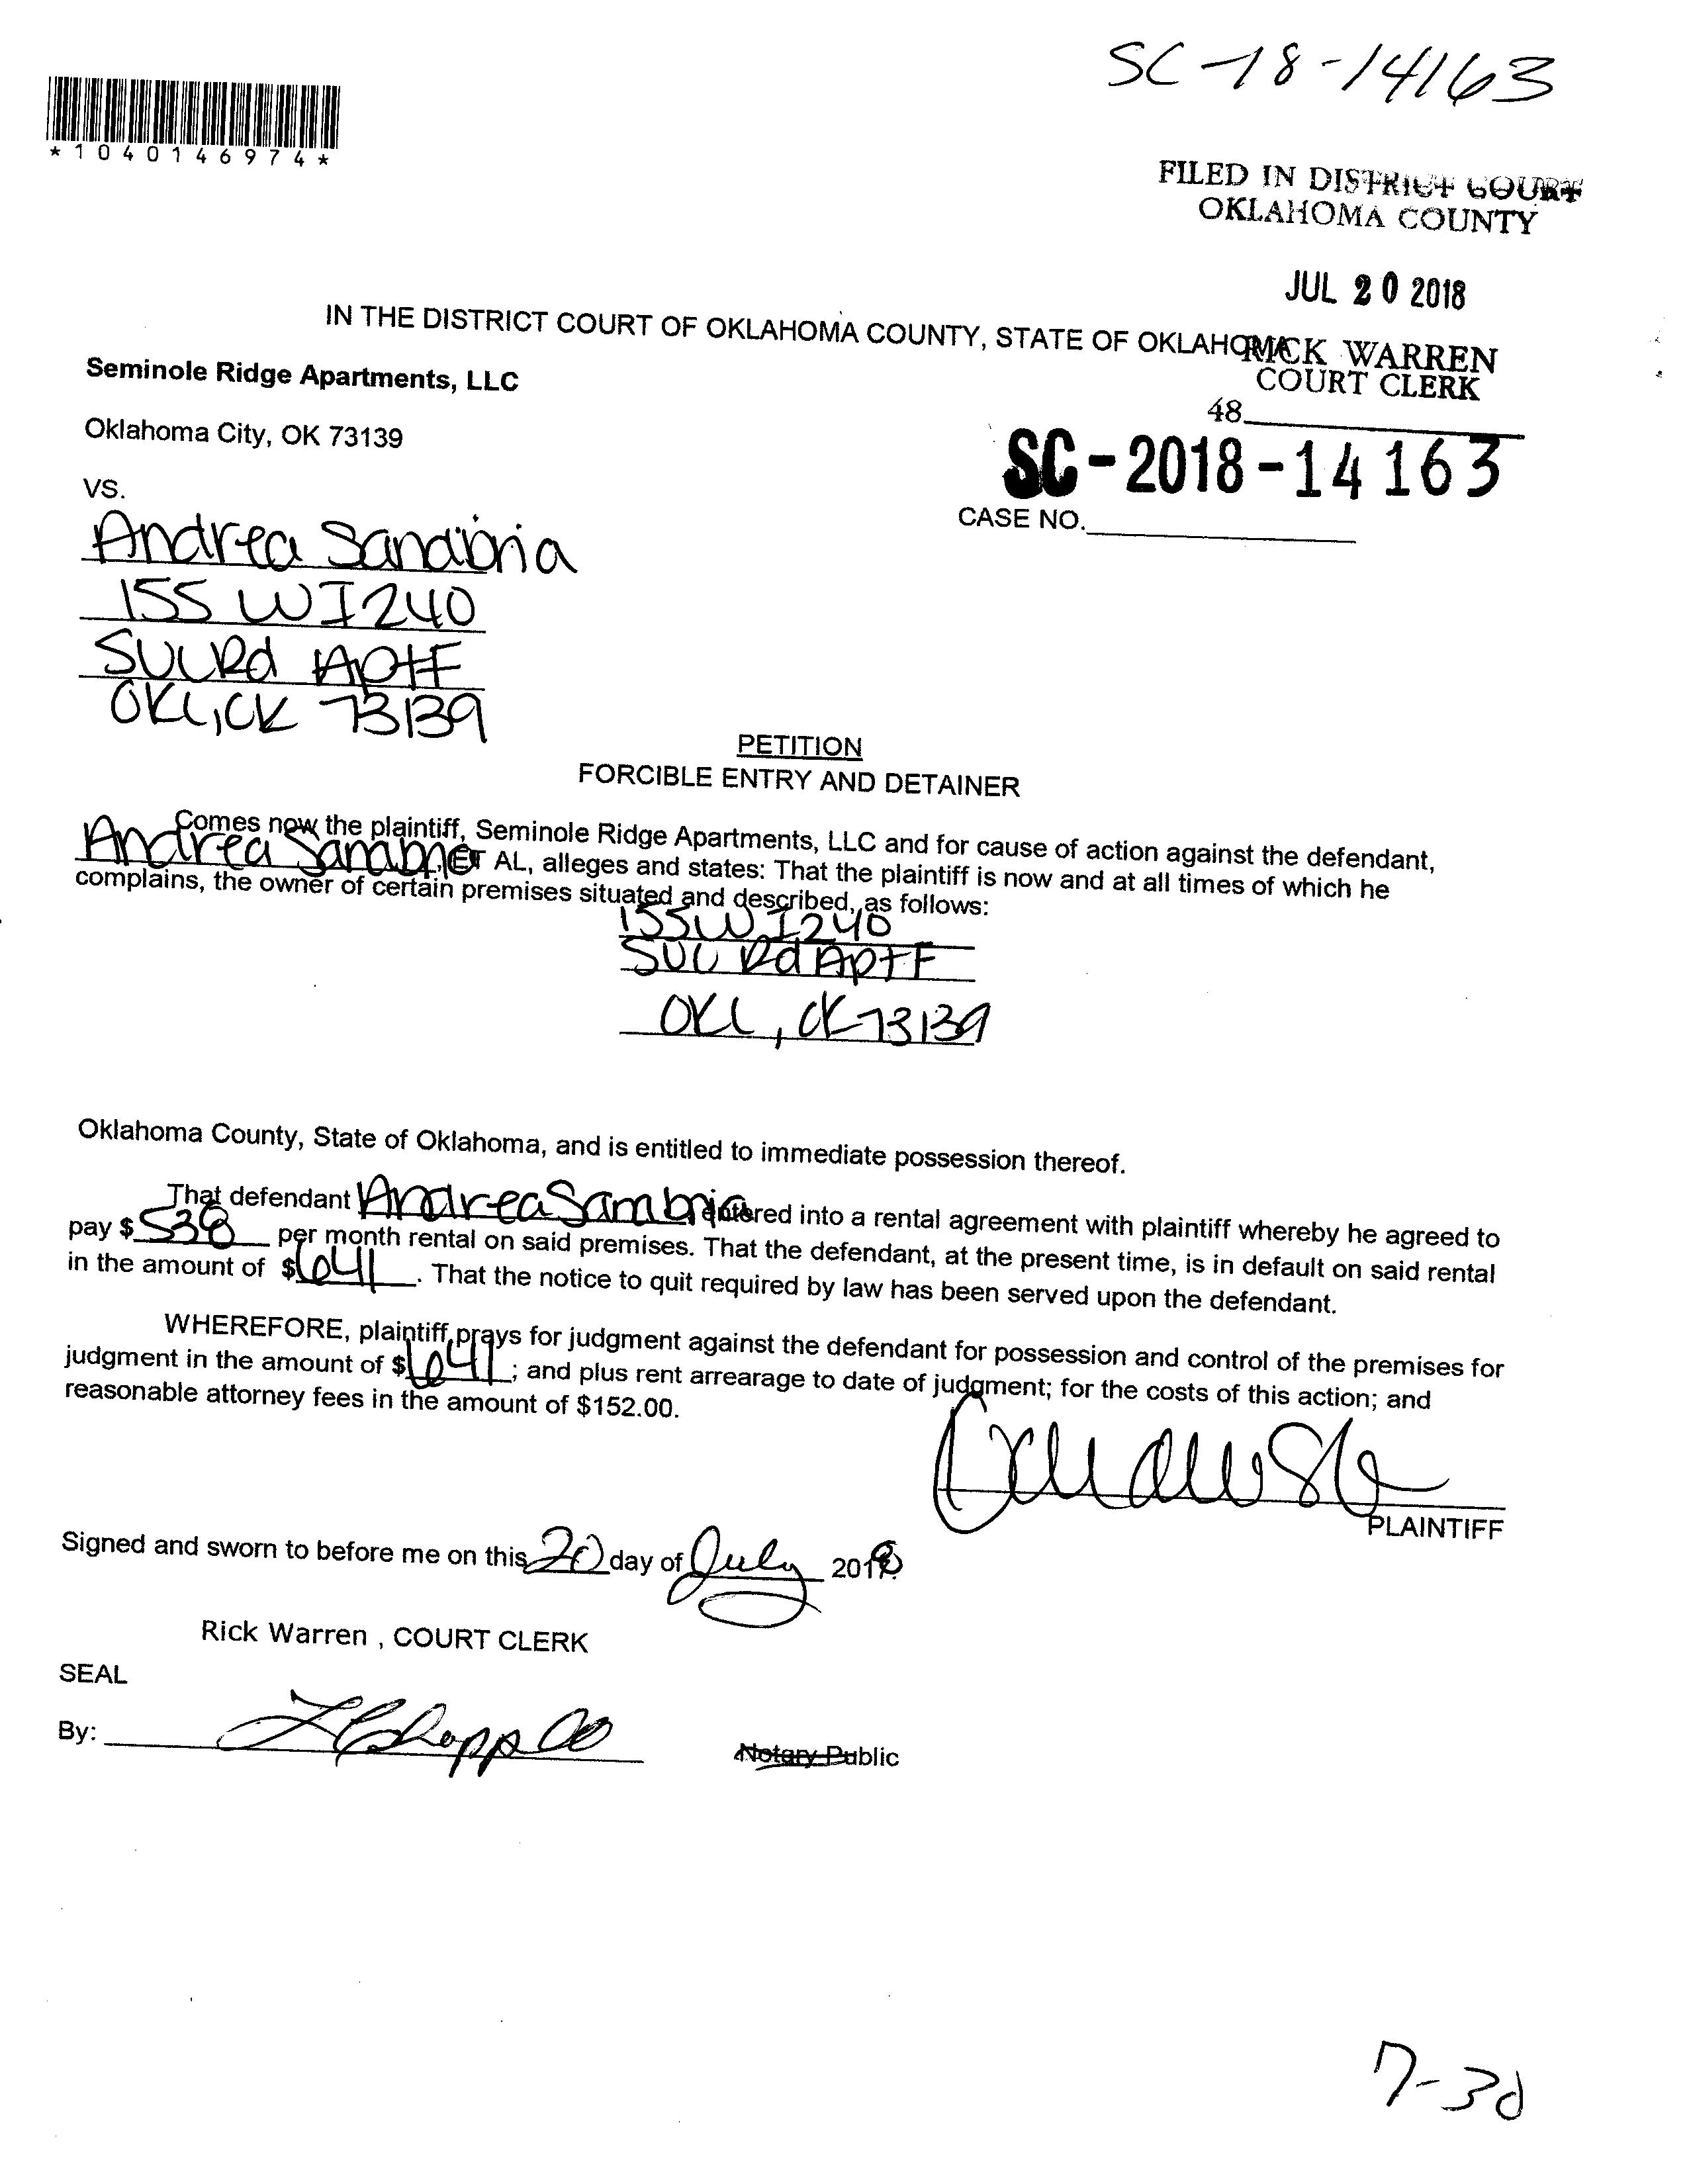 SC-18-14163
*1040146974*
FILED IN DISTRICT COURT
OKLAHOMA COUNTY
JUL 20 2018
IN THE DISTRICT COURT OF OKLAHOMA COUNTY, STATE OF OKLAHOMA
RICK WARREN
COURT CLERK
Seminole Ridge Apartments, LLC
48
Oklahoma City, OK 73139
SC-2018-14163
VS.
CASE NO.
Andrea Sanabria
155 W I240
SVC Rd Apt F
OKC, OK 73139
PETITION
FORCIBLE ENTRY AND DETAINER
Comes now the plaintiff, Seminole Ridge Apartments, LLC and for cause of action against the defendant,
Andrea Sanabria, ET AL, alleges and states: That the plaintiff is now and at all times of which he
complains, the owner of certain premises situated and described, as follows:
155 W I240
SVC Rd Apt F
OKC, OK 73139
Oklahoma County, State of Oklahoma, and is entitled to immediate possession thereof.
That defendant Andrea Sanabria entered into a rental agreement with plaintiff whereby he agreed to
pay $ 538 per month rental on said premises. That the defendant, at the present time, is in default on said rental
in the amount of $ 641. That the notice to quit required by law has been served upon the defendant.
WHEREFORE, plaintiff prays for judgment against the defendant for possession and control of the premises for
judgment in the amount of $ 641; and plus rent arrearage to date of judgment; for the costs of this action; and
reasonable attorney fees in the amount of $152.00.
PLAINTIFF
Signed and sworn to before me on this 20 day of July 2018
Rick Warren , COURT CLERK
SEAL
By:
Notary Public
7-30